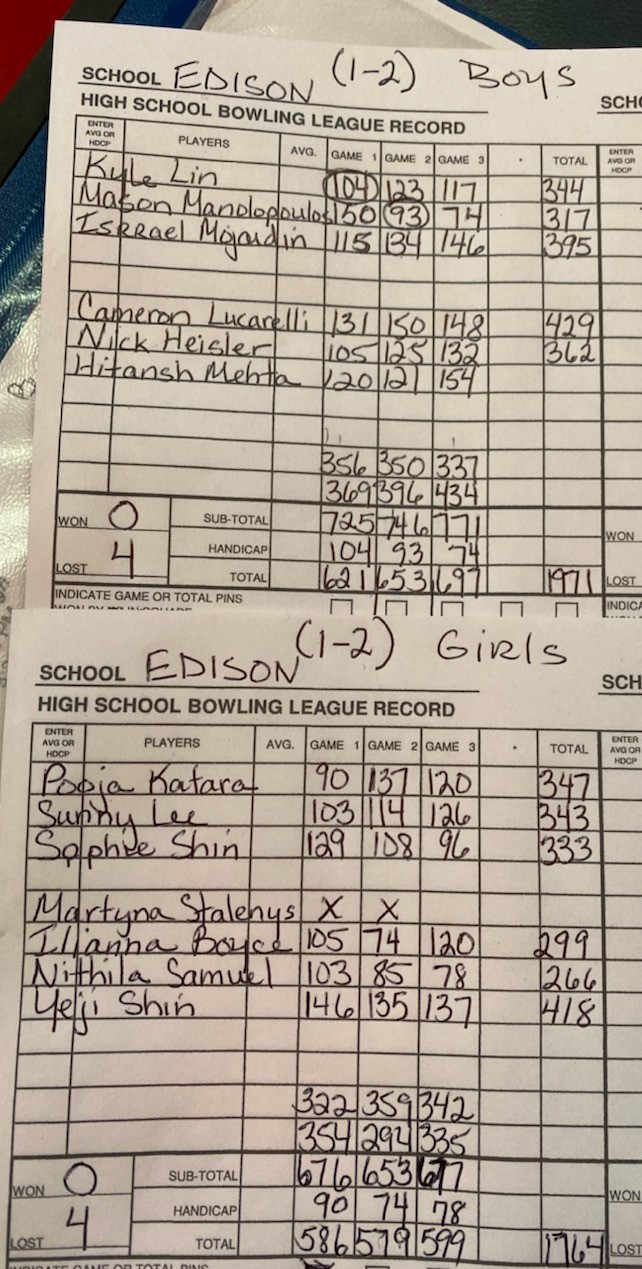 SCHOOL EDISON (1-2) Boys
SCHO
HIGH SCHOOL BOWLING LEAGUE RECORD
ENTER AVG OR HDCP PLAYERS AVG. GAME 1 GAME 2 GAME 3 TOTAL ENTER AVG OR HDCP
Kyle Lin 104 123 117 344
Mason Manolopoulos 150 93 74 317
Isreael 115 134 146 395
Cameron Lucarelli 131 150 148 429
Nick Heisler 105 125 132 362
Hitansh Mehta 120 121 154
356 350 337
369 396 434
WON 0 SUB-TOTAL 725 746 771 WON
HANDICAP 104 93 74
LOST 4 TOTAL 621 653 697 1971 LOST
INDICATE GAME OR TOTAL PINS INDICA
SCHOOL EDISON (1-2) Girls
SCH
HIGH SCHOOL BOWLING LEAGUE RECORD
ENTER AVG OR HDCP PLAYERS AVG. GAME 1 GAME 2 GAME 3 TOTAL ENTER AVG OR HDCP
Pooja Katara 90 137 120 347
Sunny Lee 103 114 126 343
Sophie Shin 129 108 96 333
Martyna Stalenys X X
Ilianna Boyce 105 74 120 299
Nithila Samuel 103 85 78 266
Yeji Shin 146 135 137 418
322 359 342
354 294 335
WON 0 SUB-TOTAL 676 653 677 WON
HANDICAP 90 74 78
LOST 4 TOTAL 586 579 599 1764 LOST
INDICATE GAME OR TOTAL PINS